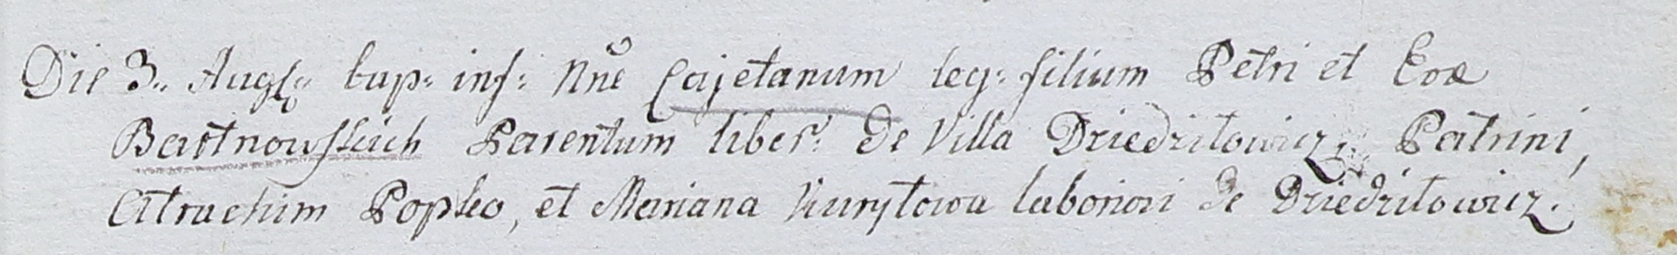 Die 3.. Augs: bap: inf: Nn̄e Cajetanum leg: filium Petri et Evæ
Bartnowskich Parentum liber: de Villa Dziedziłowicz; Patrini,
Atrachim Popko, et Mariana Kuryłowa laboriosi de Dziedziłowicz.